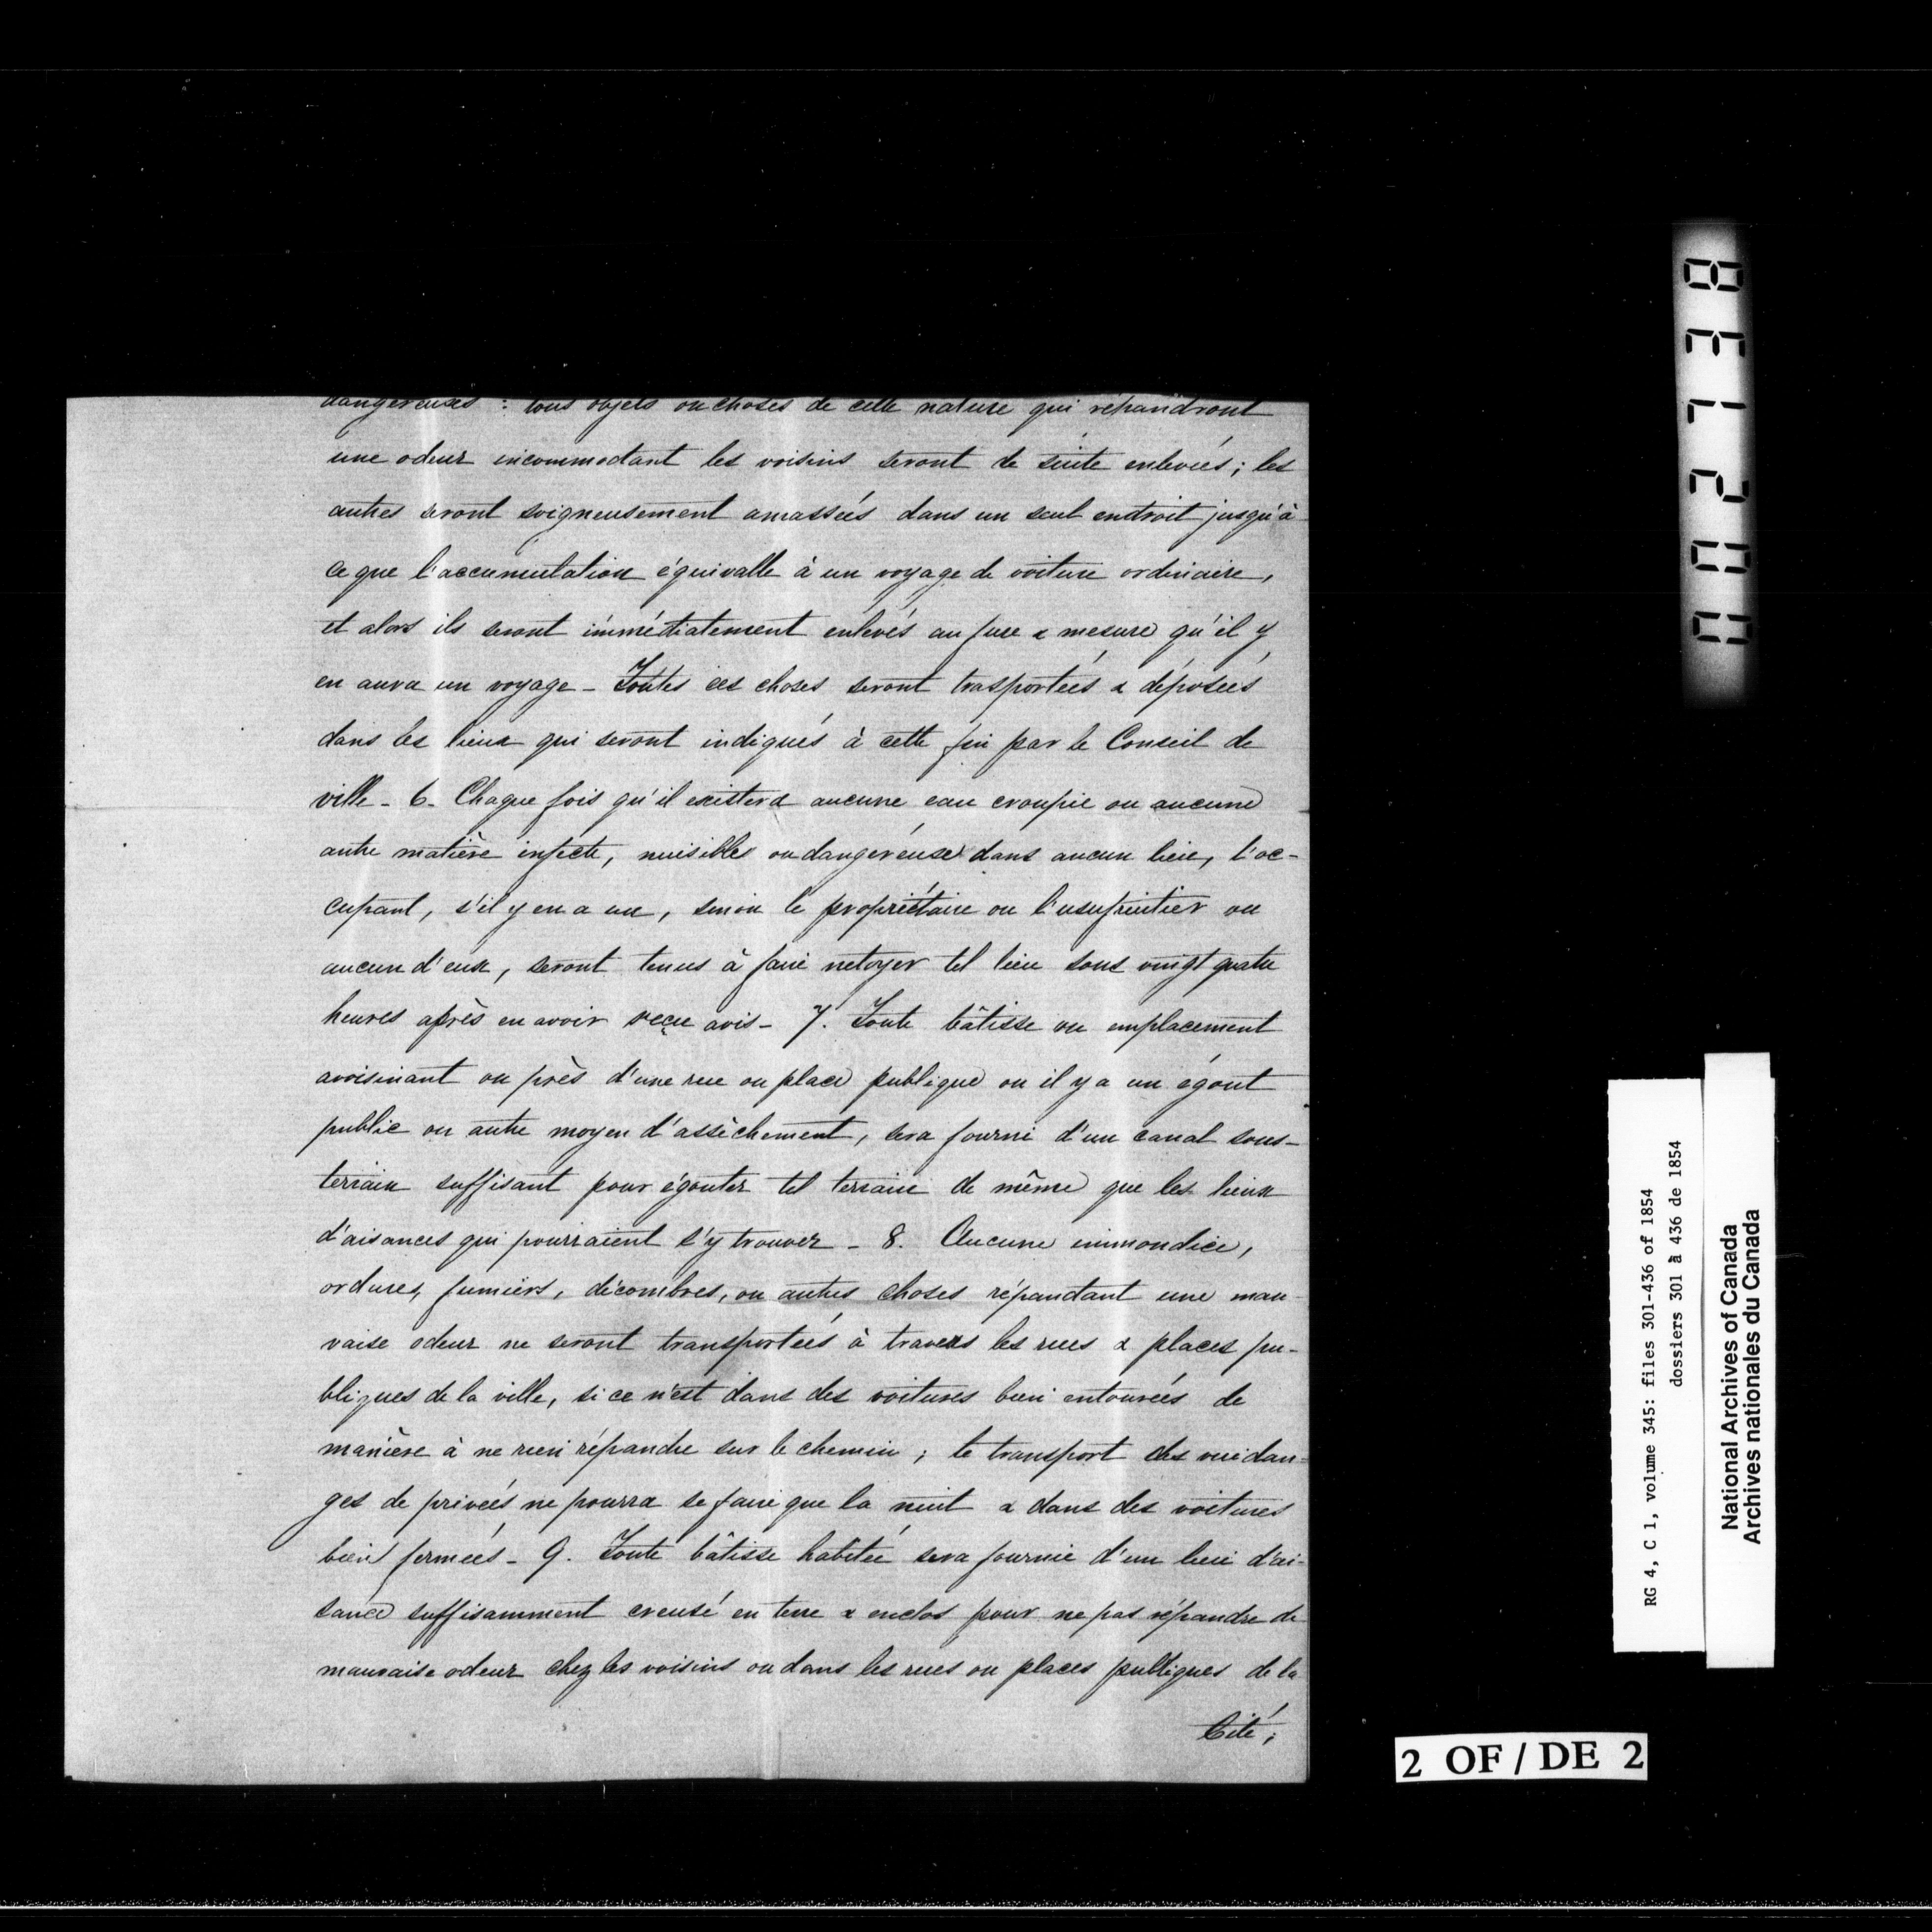 dangereuses : tous objets ou choses de cette nature qui répandront
une odeur incommodant les voisins seront de suite enlevées ; les
autres seront soigneusement amassées dans un seul endroit jusqu'à
ce que l'accumulation équivalle à un voyage de voiture ordinaire,
et alors ils seront immédiatement enlevés au fure & mesure qu'il y
en aura un voyage _ Toutes ces choses seront trasportées & déposées
dans les lieux qui seront indiqués à cette fin par le Conseil de
ville _ 6 _ Chaque fois qu'il existera aucune eau croupie ou aucune
autre matière infecte, nuisibles ou dangéreuse dans aucun lieu, l'oc-
cupant, s'il y en a un, sinon le propriétaire ou l'usufruitier ou
aucun d'eux, seront tenus à faire netoyer tel lieu sous vingt quatre
heures après en avoir reçu avis _ 7. Toute bâtisse ou emplacement
avoisinant ou près d'une rue ou place publique ou il y a un égout
public ou autre moyen d'assèchement, sera fourni d'un canal sous-
terrain suffisant pour égouter tel terrain de même que les lieux
d'aisances qui pourraient s'y trouver _ 8. Aucune immondice,
ordures, fumiers, décombres, ou autres choses répandant une mau-
vaise odeur ne seront transportées à travers les rues & places pu-
bliques de la ville, si ce n'est dans des voitures bien entourées de
manière à ne rien répandre sur le chemin ; le transport des vuidan-
ges de privées ne pourra se faire que la nuit & dans des voitures
bien fermées _ 9. Toute bâtisse habitée sera fournie d'un lieu d'ai-
sance suffisamment creusé en terre & enclos pour ne pas répandre de
mauvaise odeur chez les voisins ou dans les rues ou places publiques de la
Cité ;
BEL200
RG 4, C 1, volume 345: files 301-436 of 1854
dossiers 301 à 436 de 1854
National Archives of Canada
Archives nationales du Canada
2 OF / DE 2